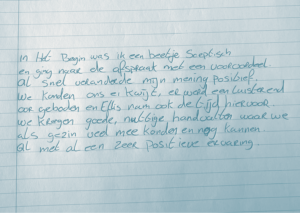 In Het Begin was ik een beetje Sceptisch
en ging naar de afspraak met een vooroordeel.
Al snel veranderde mijn mening positief.
We konden ons ei kwijt, er werd een luisterend
oor geboden en Ellis nam ook de tijd hiervoor.
we kregen goede, nuttige handvaten waar we
als gezin veel mee konden en nog kunnen.
Al met al een zeer positieve ervaring.